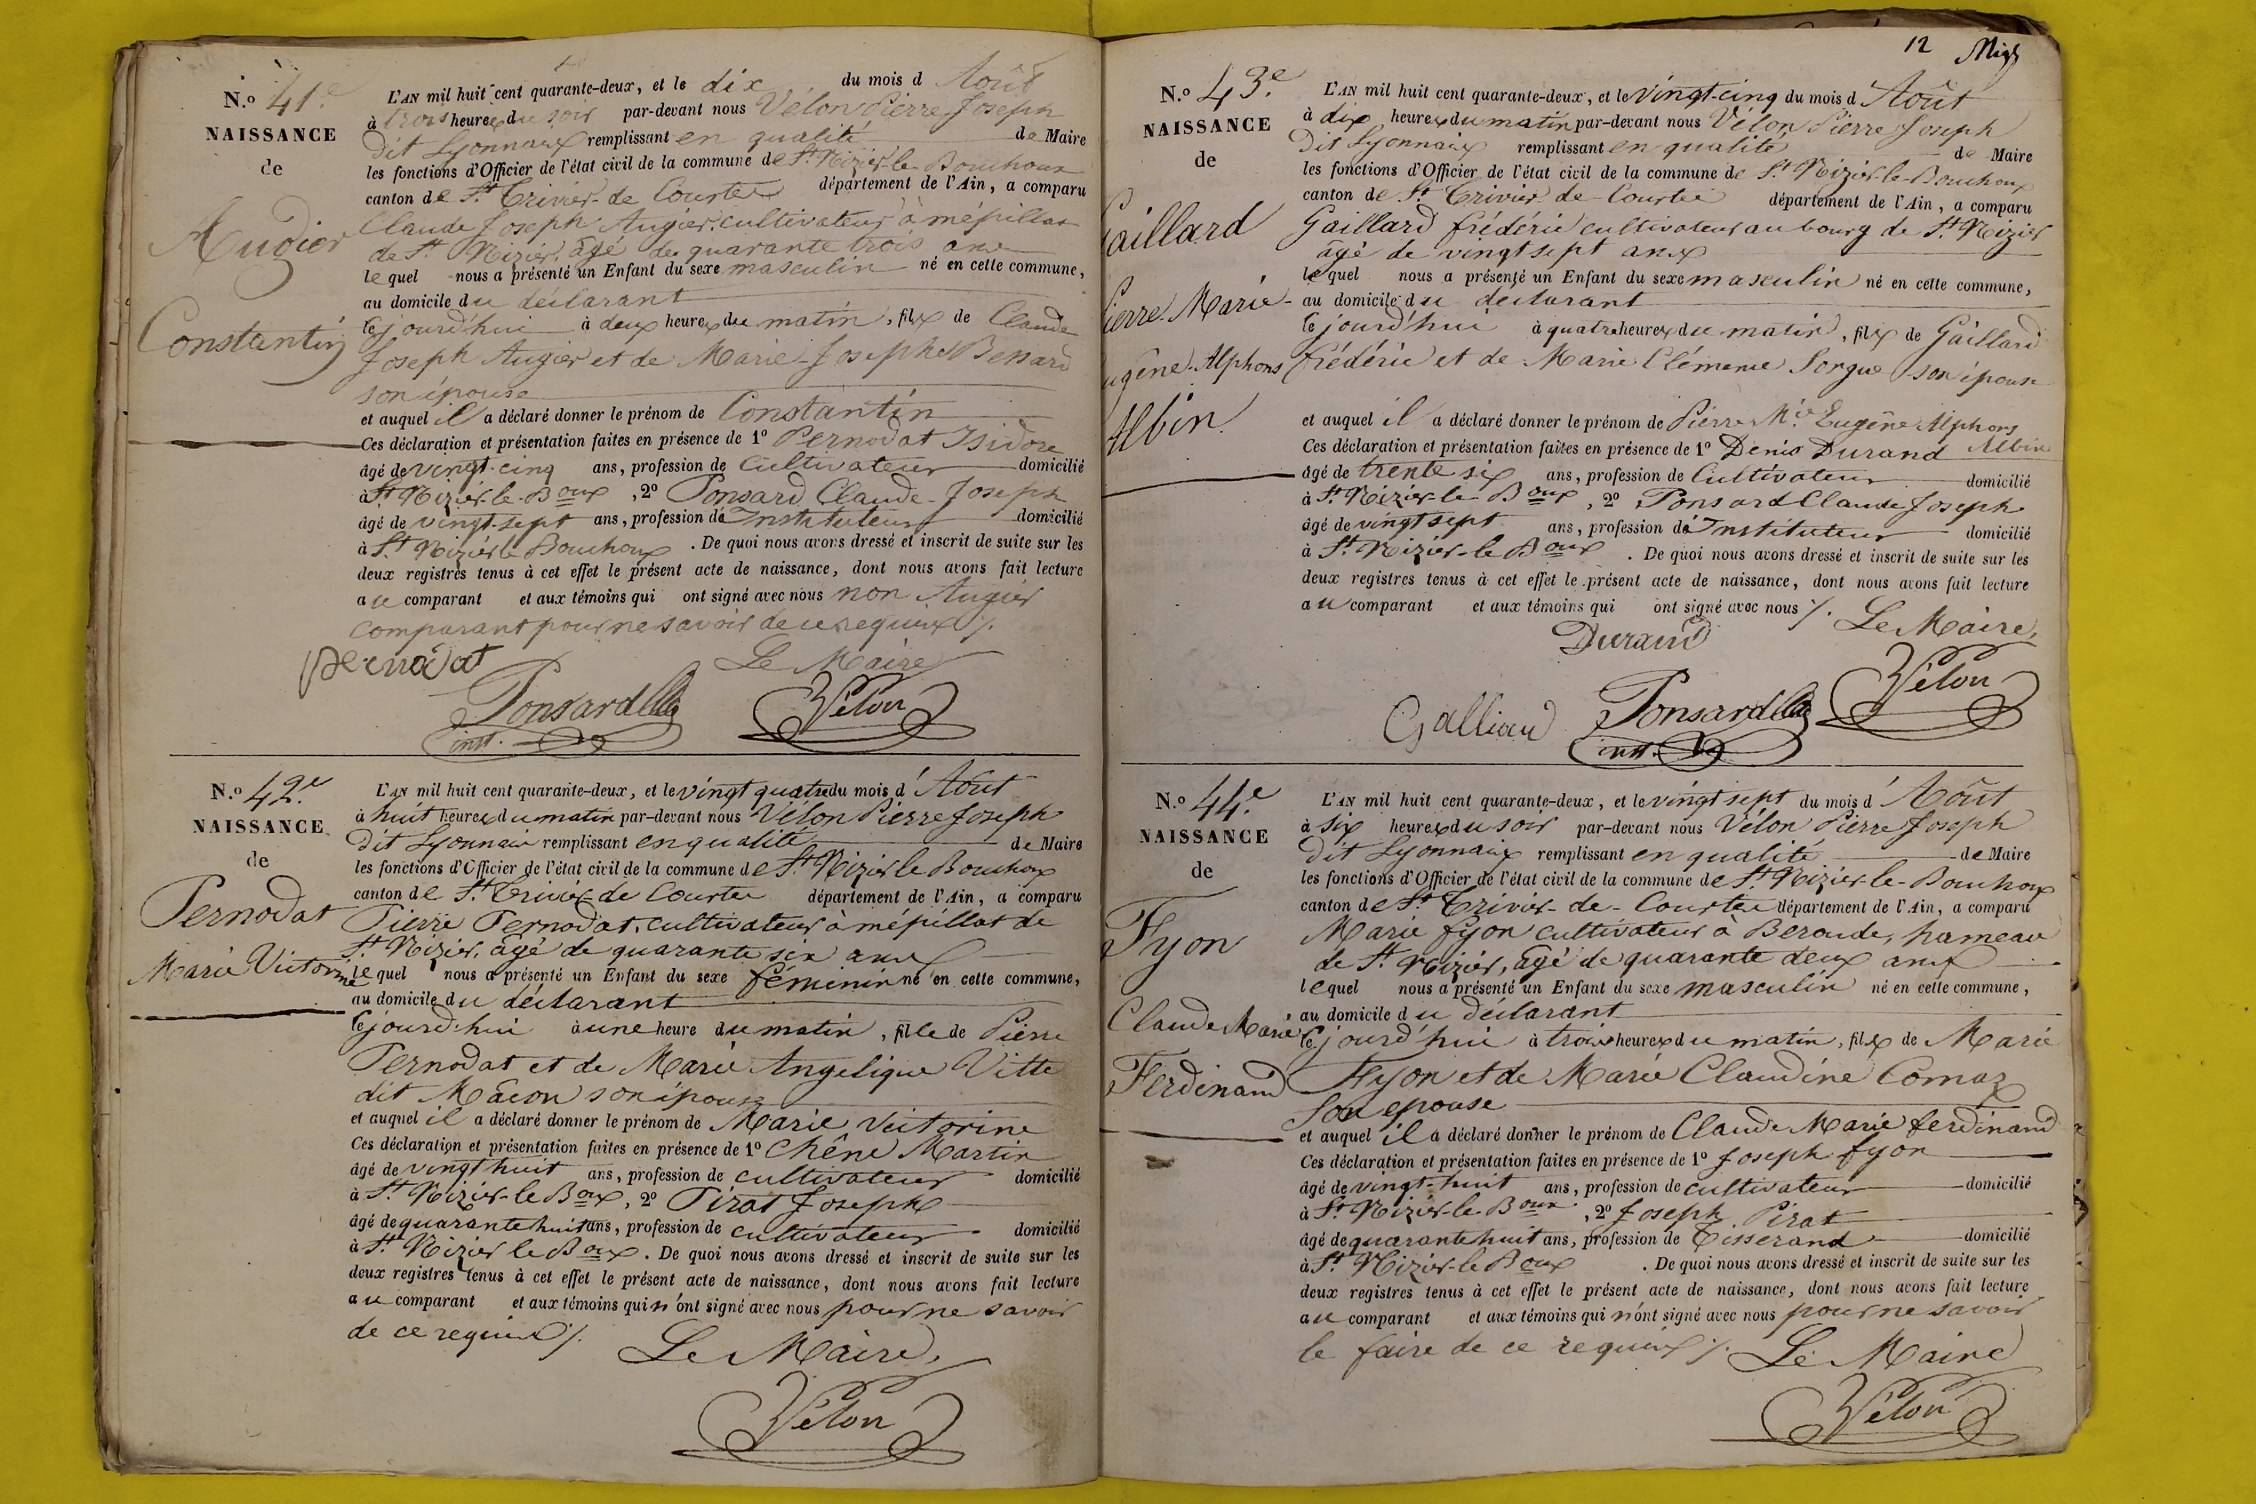 N.o 41.e
NAISSANCE
de
Augier
Constantin
L'AN mil huit cent quarante-deux, et le dix du mois d Août
à trois heures du soir par-devant nous Vélon Pierre Joseph
dit Lyonnaix remplissant en qualité de Maire
les fonctions d'Officier de l'état civil de la commune de St Nizier-le-Bouchoux
canton de St Trivier-de Courtes département de l'Ain, a comparu
Claude Joseph Augier, cultivateur à mépillat
de St Nizier, âgé de quarante trois ans
lequel nous a présenté un Enfant du sexe masculin né en cette commune,
au domicile du déclarant
le jourd'hui à deux heures du matin, fils de Claude
Joseph Augier et de Marie-Josephe Benard
son épouse
et auquel il a déclaré donner le prénom de Constantin
Ces déclaration et présentation faites en présence de 1o Pernodat Isidore
âgé de vingt-cinq ans, profession de cultivateur domicilié
à St Nizier-le-Boux, 2o Ponsard Claude-Joseph
âgé de vingt-sept ans, profession d'Instituteur domicilié
à St Nizier le Bouchoux. De quoi nous avons dressé et inscrit de suite sur les
deux registres tenus à cet effet le présent acte de naissance, dont nous avons fait lecture
au comparant et aux témoins qui ont signé avec nous non Augier
comparant pour ne savoir de ce requis ./.
Pernodat
Le Maire
Ponsard Cl.
inst.
Vélon
N.o 42.e
NAISSANCE
de
Pernodat
Marie Victorine
L'AN mil huit cent quarante-deux, et le vingt quatre du mois d'Août
à huit heures du matin par-devant nous Vélon Pierre Joseph
dit Lyonnaix remplissant en qualité de Maire
les fonctions d'Officier de l'état civil de la commune de St Nizier le Bouchoux
canton de St Trivier de Courtes département de l'Ain, a comparu
Pierre Pernodat, cultivateur à mépillat de
St Nizier, âgé de quarante six ans
lequel nous a présenté un Enfant du sexe féminin né en cette commune,
au domicile du déclarant
le jourd'hui à une heure du matin, fille de Pierre
Pernodat et de Marie Angelique Vitte
dit Mâcon son épouse
et auquel il a déclaré donner le prénom de Marie Victorine
Ces déclaration et présentation faites en présence de 1o Chêne Martin
âgé de vingt huit ans, profession de cultivateur domicilié
à St Nizier-le Boux, 2o Pirat Joseph
âgé de quarante huit ans, profession de cultivateur domicilié
à St Nizier le Boux. De quoi nous avons dressé et inscrit de suite sur les
deux registres tenus à cet effet le présent acte de naissance, dont nous avons fait lecture
au comparant et aux témoins qui n'ont signé avec nous pour ne savoir
de ce requis ./.
Le Maire,
Vélon
12
N.o 43.e
NAISSANCE
de
Gaillard
Pierre-Marie-
Eugêne-Alphons
Albin.
L'AN mil huit cent quarante-deux, et le vingt-cinq du mois d'Août
à dix heures du matin par-devant nous Vélon Pierre Joseph
dit Lyonnaix remplissant en qualité de Maire
les fonctions d'Officier de l'état civil de la commune de St Nizier-le-Bouchoux
canton de St Trivier de Courtes département de l'Ain, a comparu
Gaillard frédéric cultivateur au bourg de St Nizier
âgé de vingt sept ans
lequel nous a présenté un Enfant du sexe masculin né en cette commune,
au domicile du déclarant
le jourd'hui à quatre heures du matin, fils de Gaillard
frédéric et de Marie Clémence Sorgue son épouse
et auquel il a déclaré donner le prénom de Pierre Mie Eugêne Alphons
Albin
Ces déclaration et présentation faites en présence de 1o Denis Durand
âgé de trente six ans, profession de Cultivateur domicilié
à St Nizier-le-Boux, 2o Ponsard Claude Joseph
âgé de vingt sept ans, profession d'Instituteur domicilié
à St Nizier-le Boux. De quoi nous avons dressé et inscrit de suite sur les
deux registres tenus à cet effet le présent acte de naissance, dont nous avons fait lecture
au comparant et aux témoins qui ont signé avec nous ./.
Le Maire,
Durand
Galliard
Ponsard Cl.
inst.
Vélon
N.o 44.e
NAISSANCE
de
Fyon
Claude Marie
Ferdinand
L'AN mil huit cent quarante-deux, et le vingt sept du mois d'Août
à six heures du soir par-devant nous Vélon Pierre Joseph
dit Lyonnaix remplissant en qualité de Maire
les fonctions d'Officier de l'état civil de la commune de St Nizier-le-Bouchoux
canton de St Trivier-de-Courtes département de l'Ain, a comparu
Marie fyon cultivateur à Beroude, hameau
de St Nizier, âgé de quarante deux ans
lequel nous a présenté un Enfant du sexe masculin né en cette commune,
au domicile du déclarant
le jourd'hui à trois heures du matin, fils de Marie
Fyon et de Marie Claudine Comaz
son epouse
et auquel il a déclaré donner le prénom de Claude Marie ferdinand
Ces déclaration et présentation faites en présence de 1o Joseph fyon
âgé de vingt-huit ans, profession de cultivateur domicilié
à St Nizier-le-Boux, 2o Joseph Pirat
âgé de quarante huit ans, profession de Tisserand domicilié
à St Nizier-le Boux. De quoi nous avons dressé et inscrit de suite sur les
deux registres tenus à cet effet le présent acte de naissance, dont nous avons fait lecture
au comparant et aux témoins qui n'ont signé avec nous pour ne savoir
le faire de ce requis ./.
Le Maire
Vélon